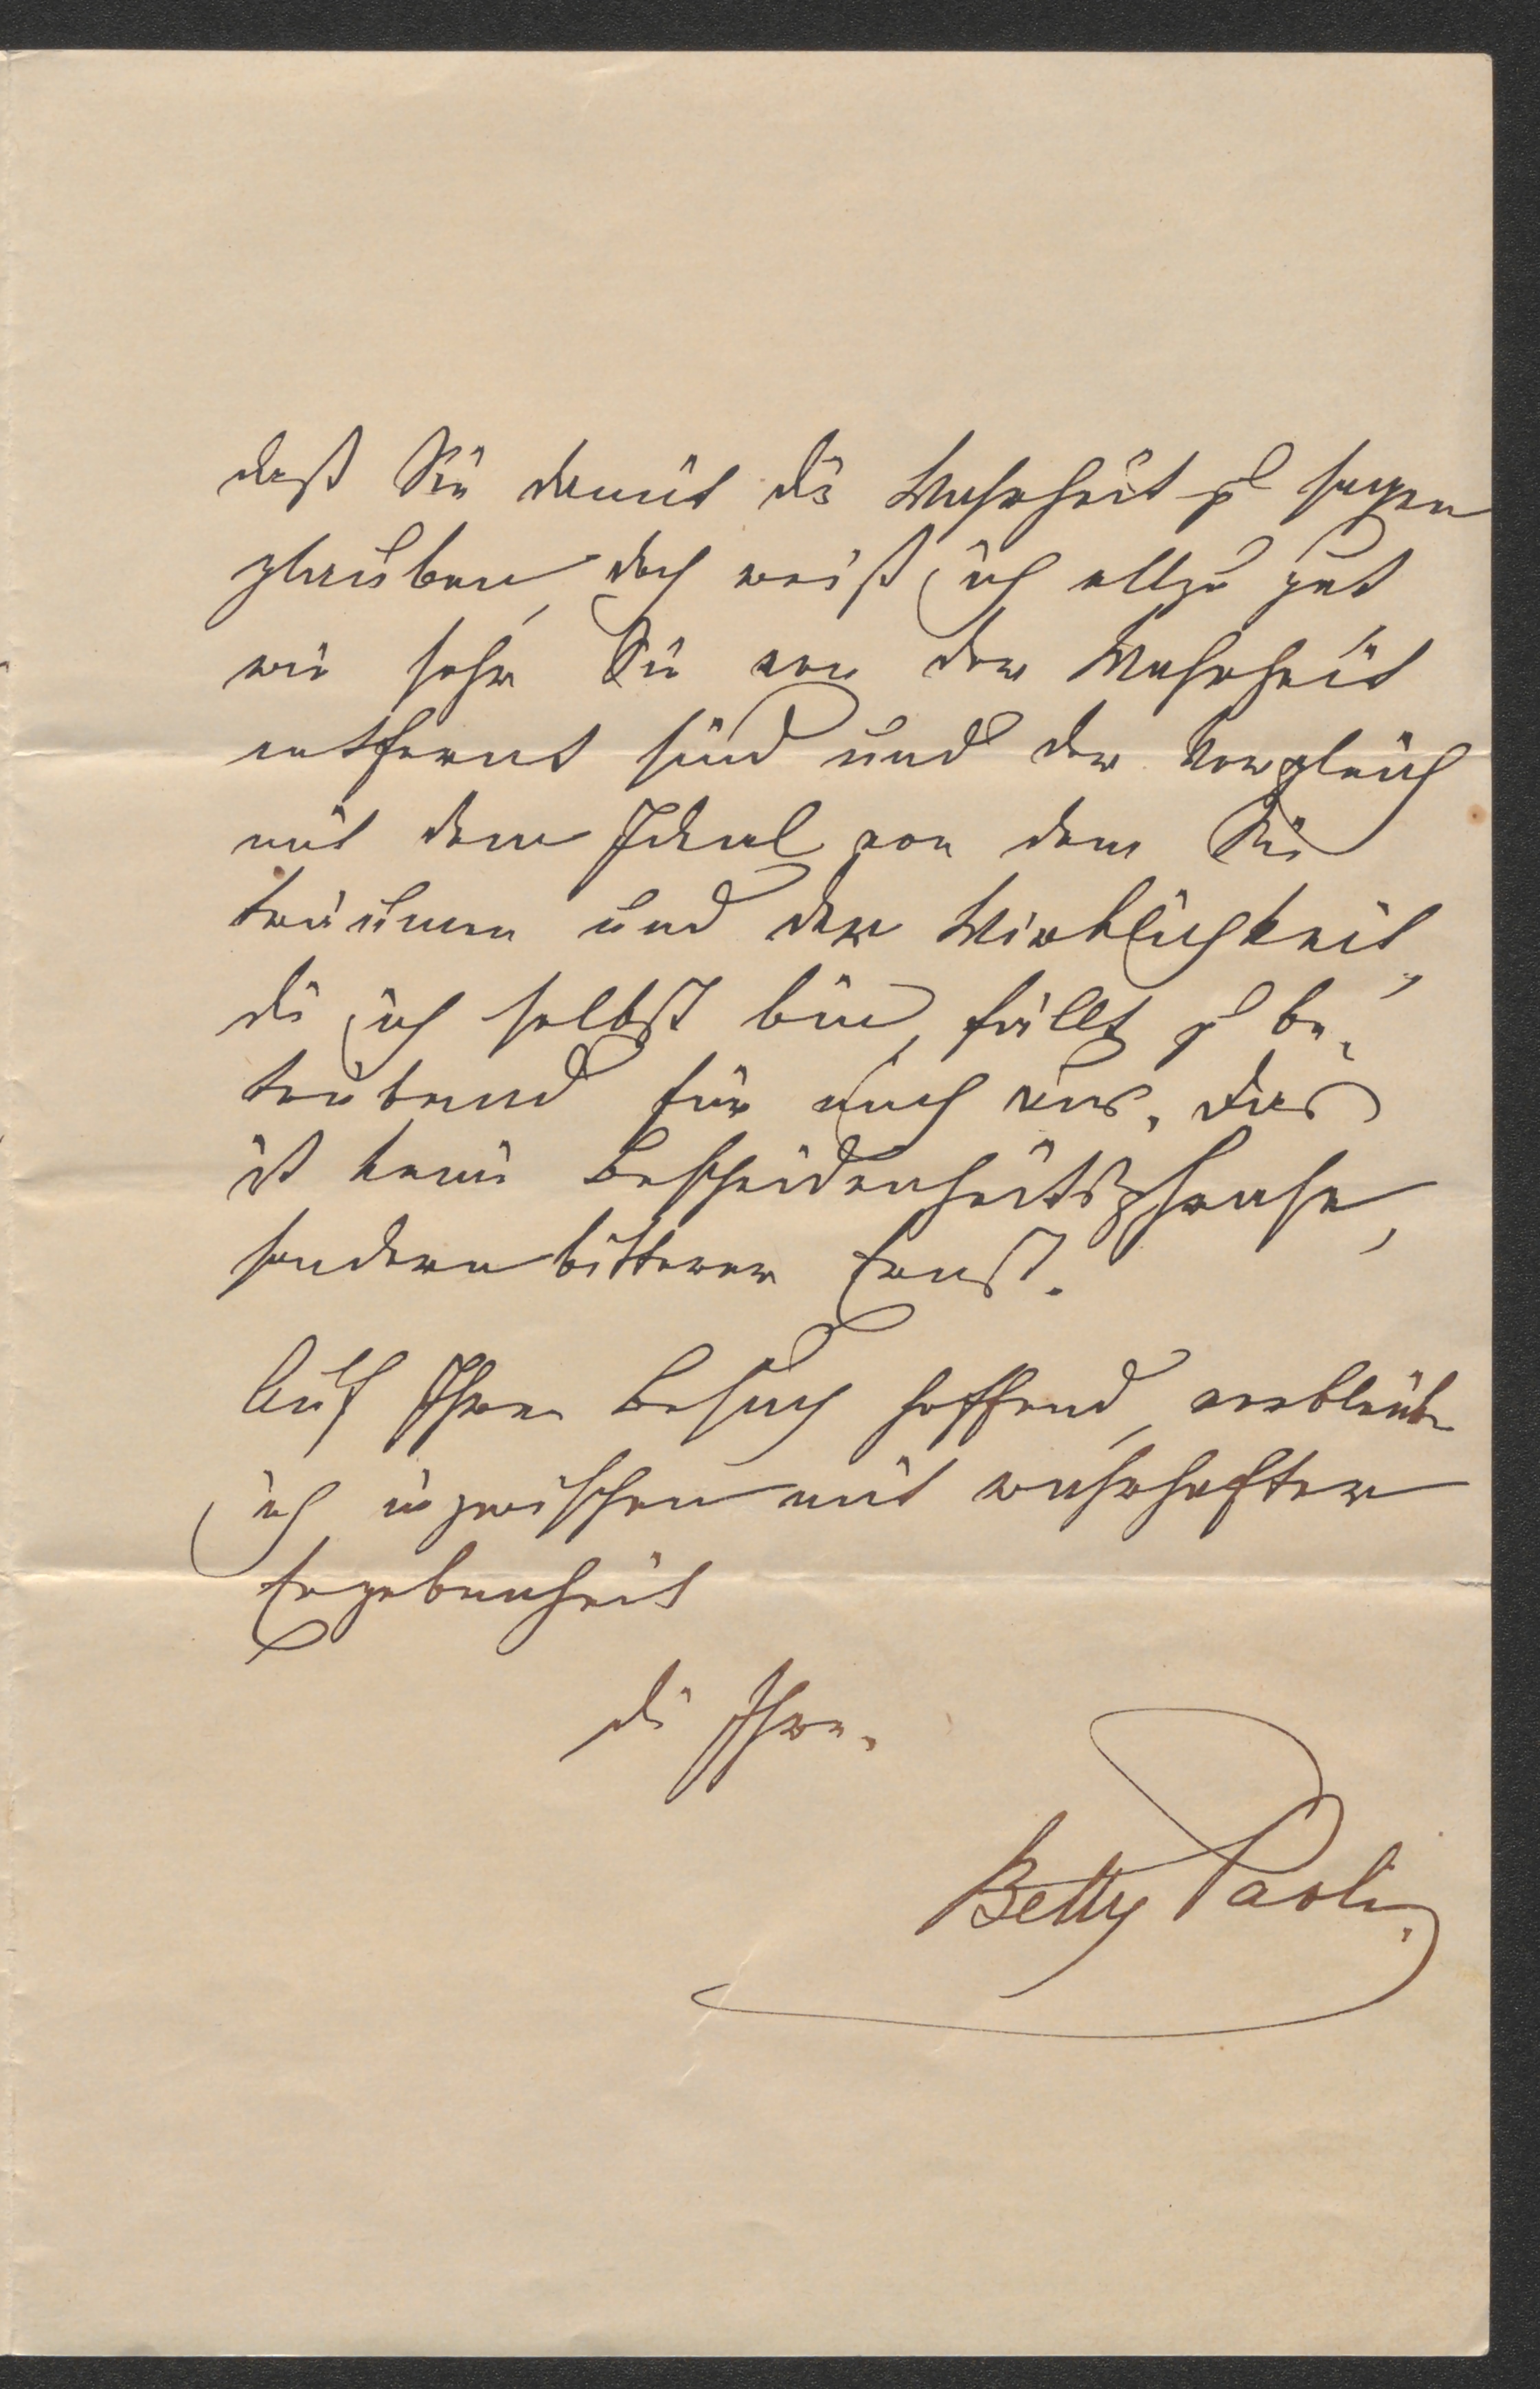 daß Sie damit die Wahrheit zu sagen
glauben, doch weiß ich allzu gut
wie sehr Sie von der Wahrheit
entfernt sind und der Vergleich
mit dem Ideal von dem Sie
träumen und der Wirklichkeit,
die ich selbst bin, fällt zu be-
trübend für mich aus. Das
ist keine Bescheidenheitsphrase,
sondern bitterer Ernst.
Auf Ihren Besuch hoffend, verbleibe
ich inzwischen mit wahrhafter
Ergebenheit
die Ihre.
Betty Paoli.